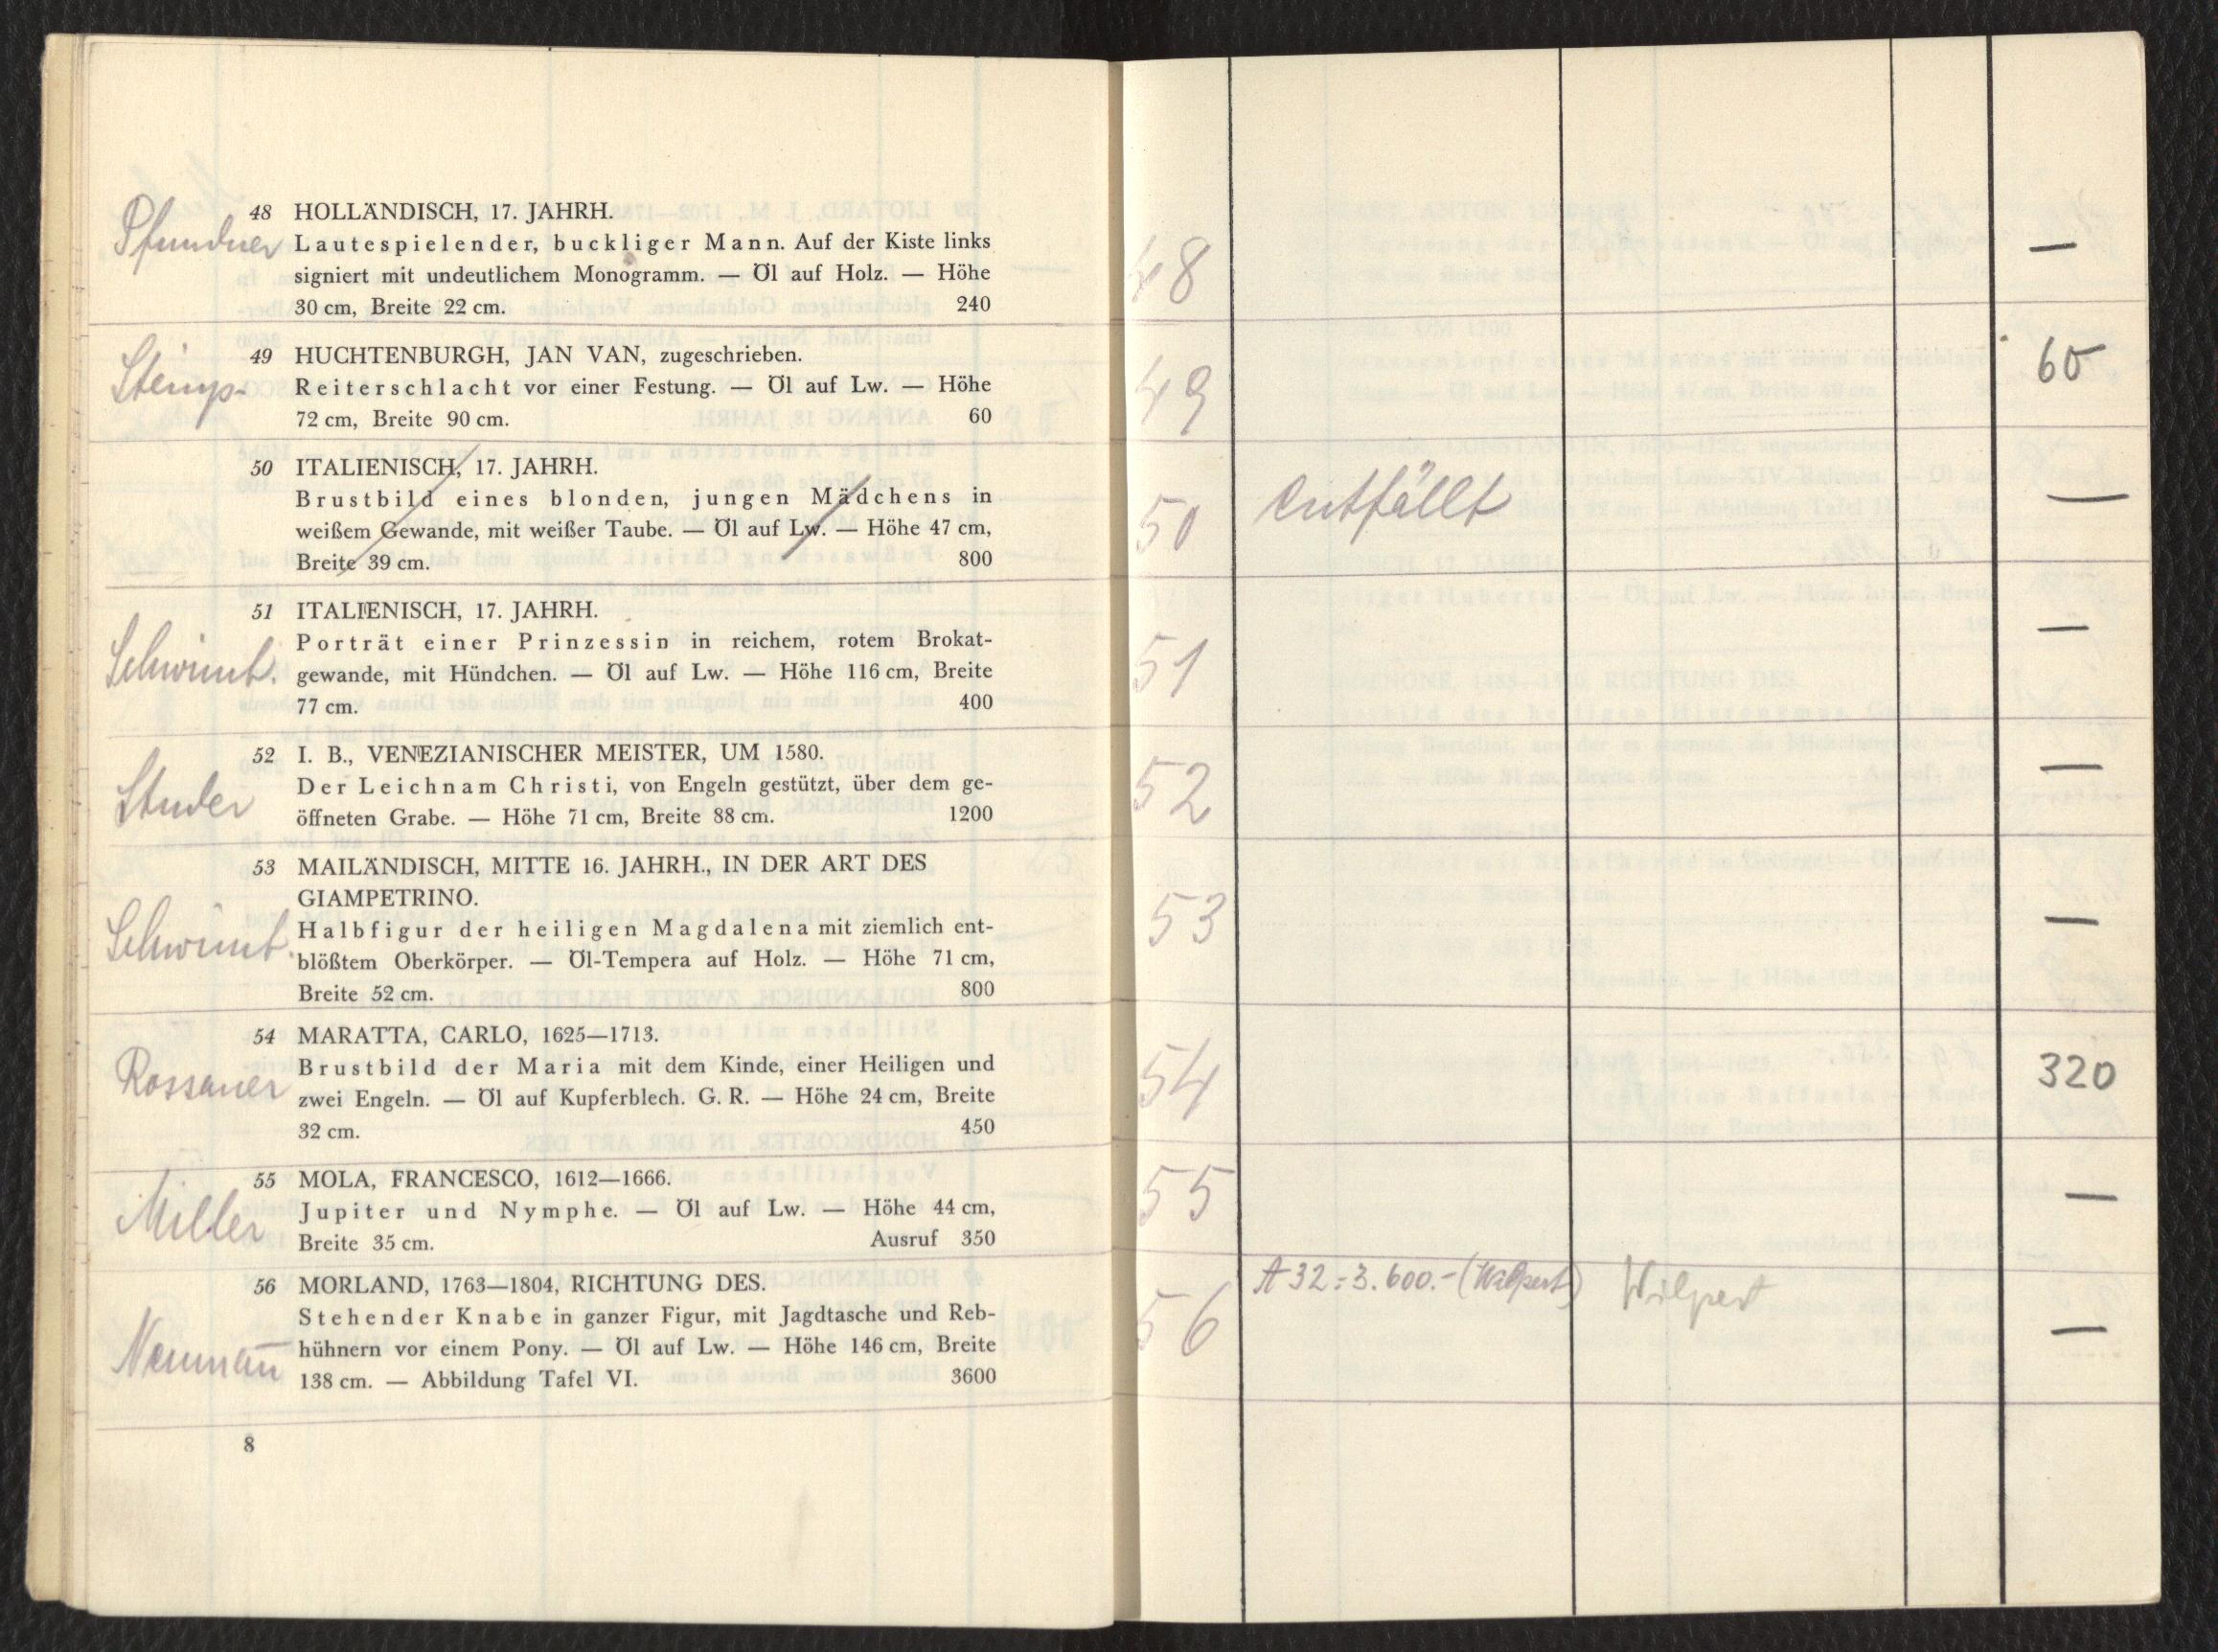 Pfundner
48 HOLLÄNDISCH, 17. JAHRH.
Lautespielender, buckliger Mann. Auf der Kiste links
signiert mit undeutlichem Monogramm. — Öl auf Holz. — Höhe
30 cm, Breite 22 cm. 240
49 HUCHTENBURGH, JAN VAN, zugeschrieben.
Reiterschlacht vor einer Festung. — Öl auf Lw. — Höhe
72 cm, Breite 90 cm. 60
50 ITALIENISCH, 17. JAHRH.
Brustbild eines blonden, jungen Mädchens in
weißem Gewande, mit weißer Taube. — Öl auf Lw. — Höhe 47 cm,
Breite 39 cm. 800
51 ITALIENISCH, 17. JAHRH.
Porträt einer Prinzessin in reichem, rotem Brokat-
Schwimb.
gewande, mit Hündchen. — Öl auf Lw. — Höhe 116 cm, Breite
77 cm. 400
52 I. B., VENEZIANISCHER MEISTER, UM 1580.
Der Leichnam Christi, von Engeln gestützt, über dem ge-
Studer
öffneten Grabe. — Höhe 71 cm, Breite 88 cm. 1200
53 MAILÄNDISCH, MITTE 16. JAHRH., IN DER ART DES
GIAMPETRINO.
Schwimb.
Halbfigur der heiligen Magdalena mit ziemlich ent-
blößtem Oberkörper. — Öl-Tempera auf Holz. — Höhe 71 cm,
Breite 52 cm. 800
54 MARATTA, CARLO, 1625—1713.
Rossauer
Brustbild der Maria mit dem Kinde, einer Heiligen und
zwei Engeln. — Öl auf Kupferblech. G. R. — Höhe 24 cm, Breite
32 cm. 450
55 MOLA, FRANCESCO, 1612—1666.
Miller
Jupiter und Nymphe. — Öl auf Lw. — Höhe 44 cm,
Breite 35 cm. Ausruf 350
56 MORLAND, 1763—1804, RICHTUNG DES.
Stehender Knabe in ganzer Figur, mit Jagdtasche und Reb-
Neumañ
hühnern vor einem Pony. — Öl auf Lw. — Höhe 146 cm, Breite
138 cm. — Abbildung Tafel VI. 3600
8
48 —
49 60
50 Entfällt —
51 —
52 —
53 —
54 320
55 —
A 32 = 3.600.- (Wilpert) Wilpert
56 —